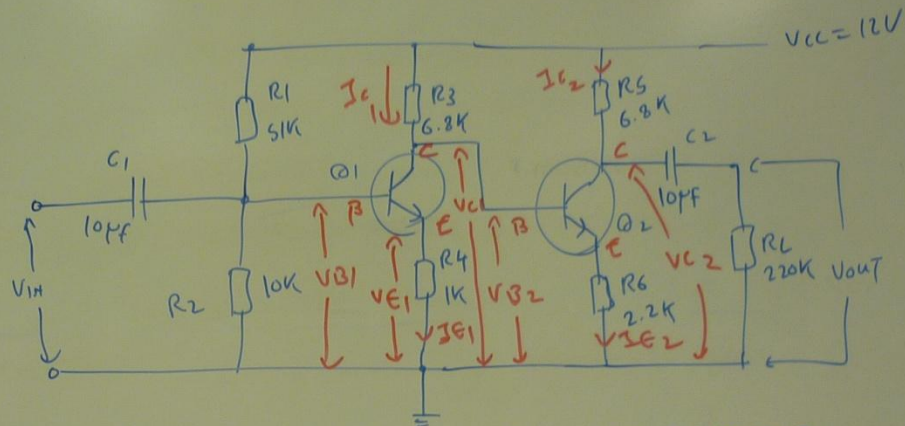 VCC = 12V
R1
51K
IC1
R3
6.8K
IC2
R5
6.8K
C1
10µf
Q1
B
C
E
VC1
B
C
E
Q2
C2
10µf
C
VIN
R2
10K
VB1
VE1
R4
1K
IE1
VB2
R6
2.2K
IE2
VC2
RL
220K
VOUT